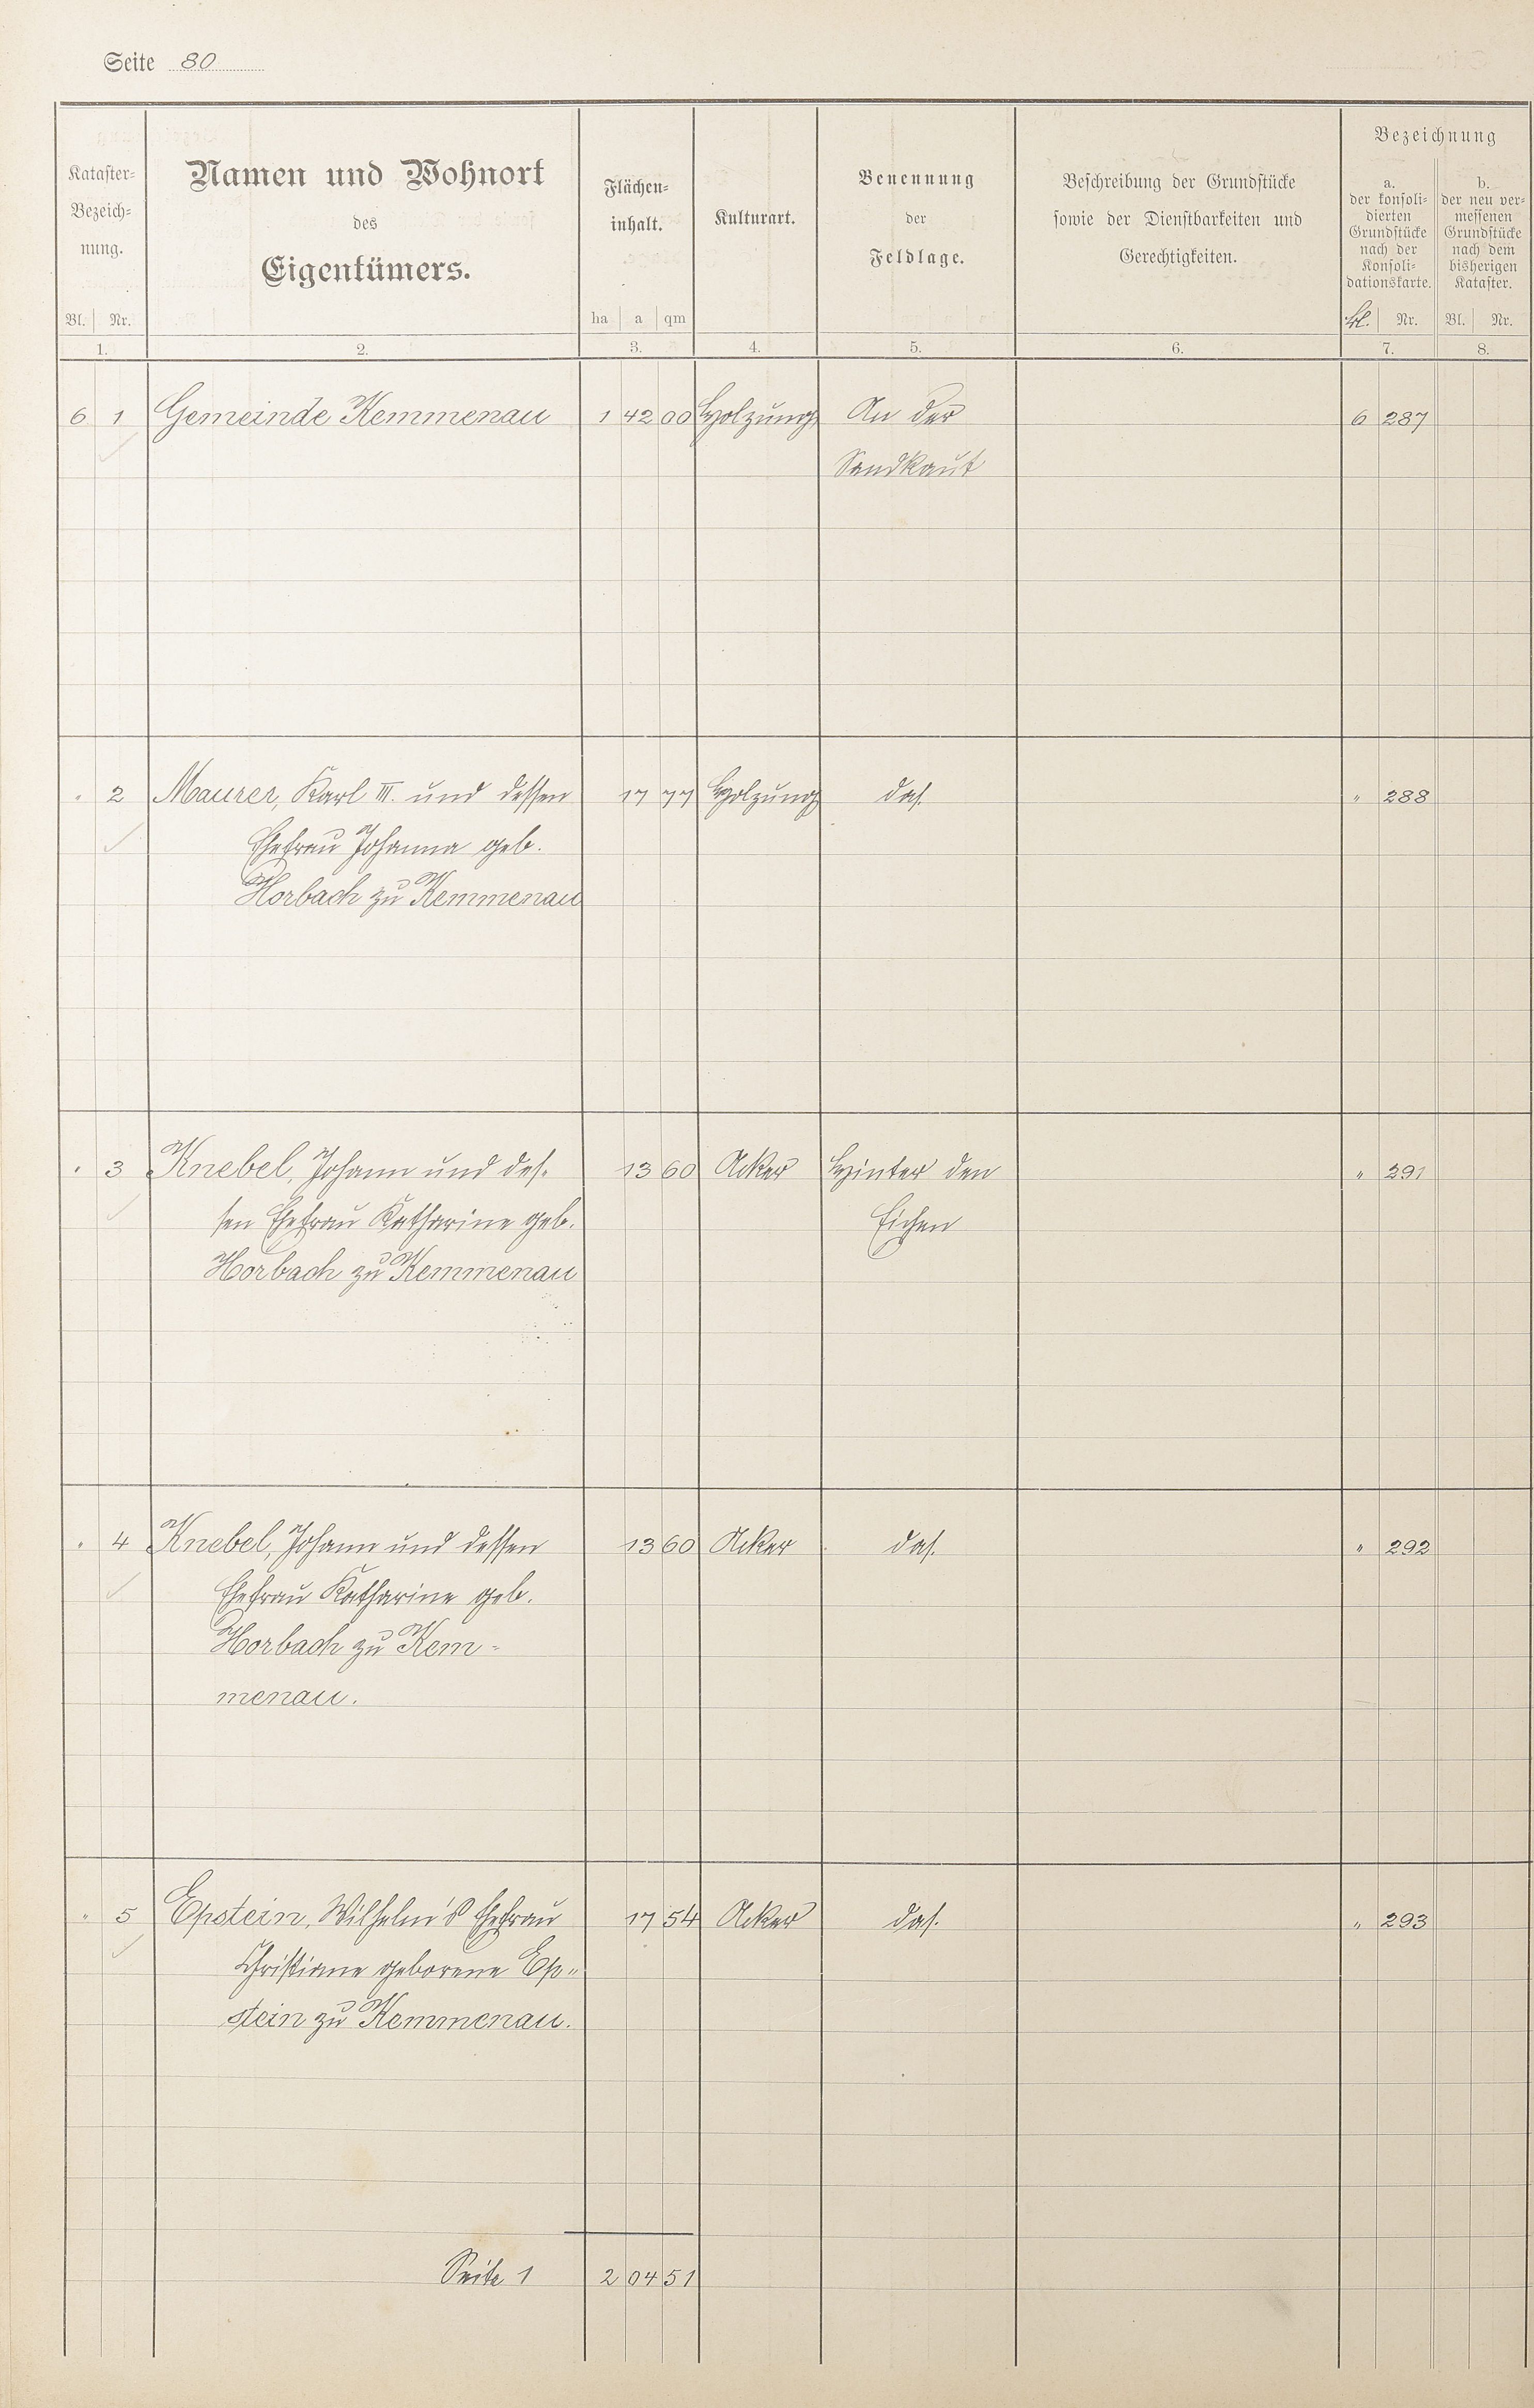 Seite 80
Kataster-
Bezeich-
nung.
Bl. Nr.
1.
Namen und Wohnort
des
Eigentümers.
2.
Flächen-
inhalt.
ha a qm
3.
Kulturart.
4.
Benennung
der
Feldlage.
5.
Beschreibung der Grundstücke
sowie der Dienstbarkeiten und
Gerechtigkeiten.
6.
Bezeichnung
a.
der konsoli-
dierten
Grundstücke
nach der
Konsoli-
dationskarte.
Bl. Nr.
7.
b.
der neu ver-
messenen
Grundstücke
nach dem
bisherigen
Kataster.
Bl. Nr.
8.
6 1 Gemeinde Kemmenau 1 42 00 Holzung An der 6 287
Sandkaut
" 2 Maurer, Karl III. und dessen 17 77 Holzung das. " 288
Ehefrau Johanna geb.
Horbach zu Kemmenau
" 3 Knebel, Johann und des- 13 60 Acker Hinter den " 291
sen Ehefrau Katharine geb. Eichen
Horbach zu Kemmenau
" 4 Knebel, Johann und dessen 13 60 Acker das. " 292
Ehefrau Katharine geb.
Horbach zu Kem-
menau.
" 5 Epstein, Wilhelm's Ehefrau 17 54 Acker das. " 293
Christiane geborene Ep-
stein zu Kemmenau.
Seite 1 2 04 51